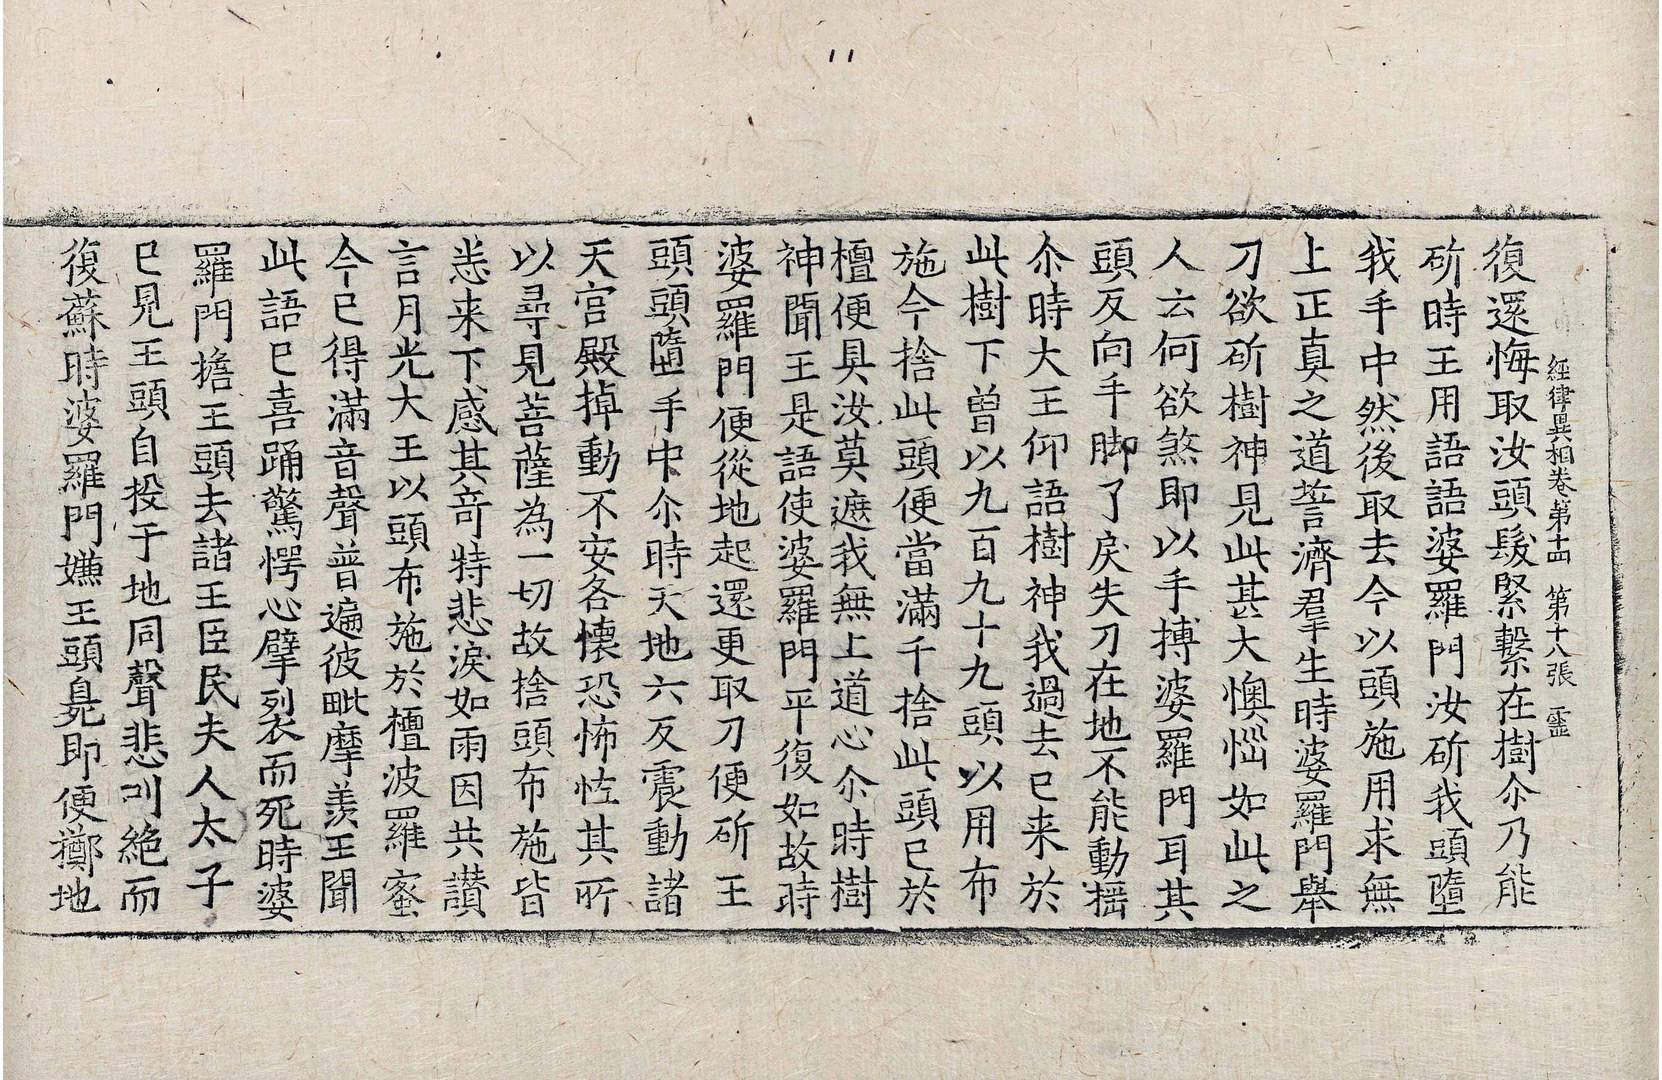 經律異相卷第十四　第十八張　靈
復還悔取汝頭髮緊繫在樹尒乃能
斫時王用語語婆羅門汝斫我頭墮
我手中然後取去今以頭施用求無
上正真之道誓濟羣生時婆羅門舉
刀欲斫樹神見此甚大懊惱如此之
人云何欲煞即以手搏婆羅門耳其
頭反向手脚了戾失刀在地不能動搖
尒時大王仰語樹神我過去已来於
此樹下曽以九百九十九頭以用布
施今捨此頭便當滿千捨此頭已於
檀便具汝莫遮我無上道心尒時樹
神聞王是語使婆羅門平復如故時
婆羅門便從地起還更取刀便斫王
頭頭墮手中尒時天地六反震動諸
天宮殿掉動不安各懷恐怖怪其所
以尋見菩薩為一切故捨頭布施皆
恙来下感其竒特悲淚如雨因共讃
言月光大王以頭布施於檀波羅蜜
今已得滿音聲普遍彼毗摩羨王聞
此語已喜踊驚愕心擘裂而死時婆
羅門擔王頭去諸王臣民夫人太子
已見王頭自投于地同聲悲叫絶而
復蘇時婆羅門嫌王頭臭即便擲地